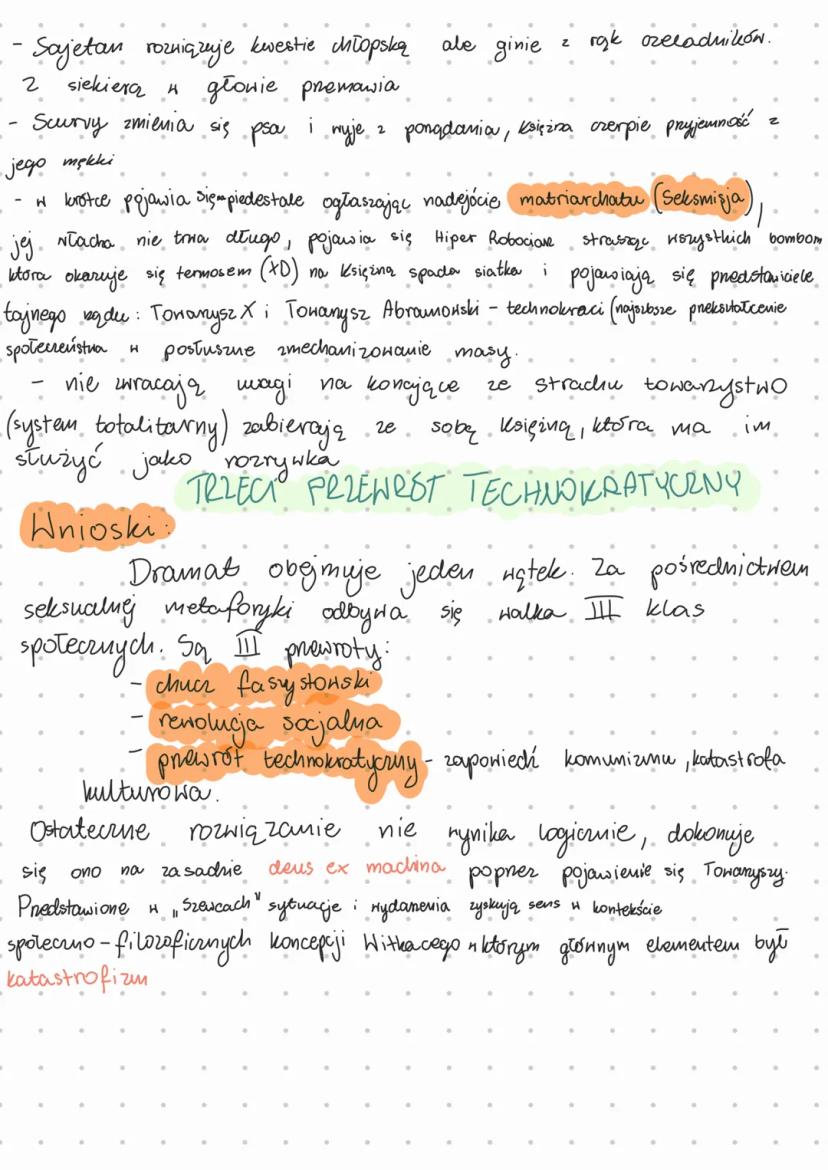 - Sajetan rozwiązuje kwestie chłopską ale ginie z rąk czeladników.
z siekierą w głowie przemawia
- Scurvy zmienia się psa i wyje z pożądania, księżna czerpie przyjemność z
jego mękki
- w krótce pojawia się piedestale ogłaszając nadejście matriarchatu (Seksmisja),
jej władza nie trwa długo, pojawia się Hiper Robociarz strasząc wszystkich bombom
która okazuje się termosem (XD) na Księżną spada siatka i pojawiają się przedstawiciele
tajnego rządu: Towarzysz X i Towarzysz Abramowski - technokraci (najszybsze przekształcenie
społeczeństwa w posłuszne zmechanizowanie masy.
- nie zwracają uwagi na konające ze strachu towarzystwo
(system totalitarny) zabierają ze sobą księżną, która ma im
służyć jako rozrywka
TRZECI PRZEWRÓT TECHNOKRATYCZNY
Wnioski:
Dramat obejmuje jeden wątek. Za pośrednictwem
seksualnej metaforyki odbywa się walka III klas
społecznych. Są III przewroty:
- chucz faszystowski
- rewolucja socjalna
- przewrót technokratyczny - zapowiedź komunizmu, katastrofa
kulturowa.
Ostateczne rozwiązanie nie wynika logicznie, dokonuje
się ono na zasadzie deus ex machina poprzez pojawienie się Towarzyszy.
Przedstawione w „Szewcach" sytuacje i wydarzenia zyskują sens w kontekście
społeczno-filozoficznych koncepcji Witkacego w którym głównym elementem był
katastrofizm